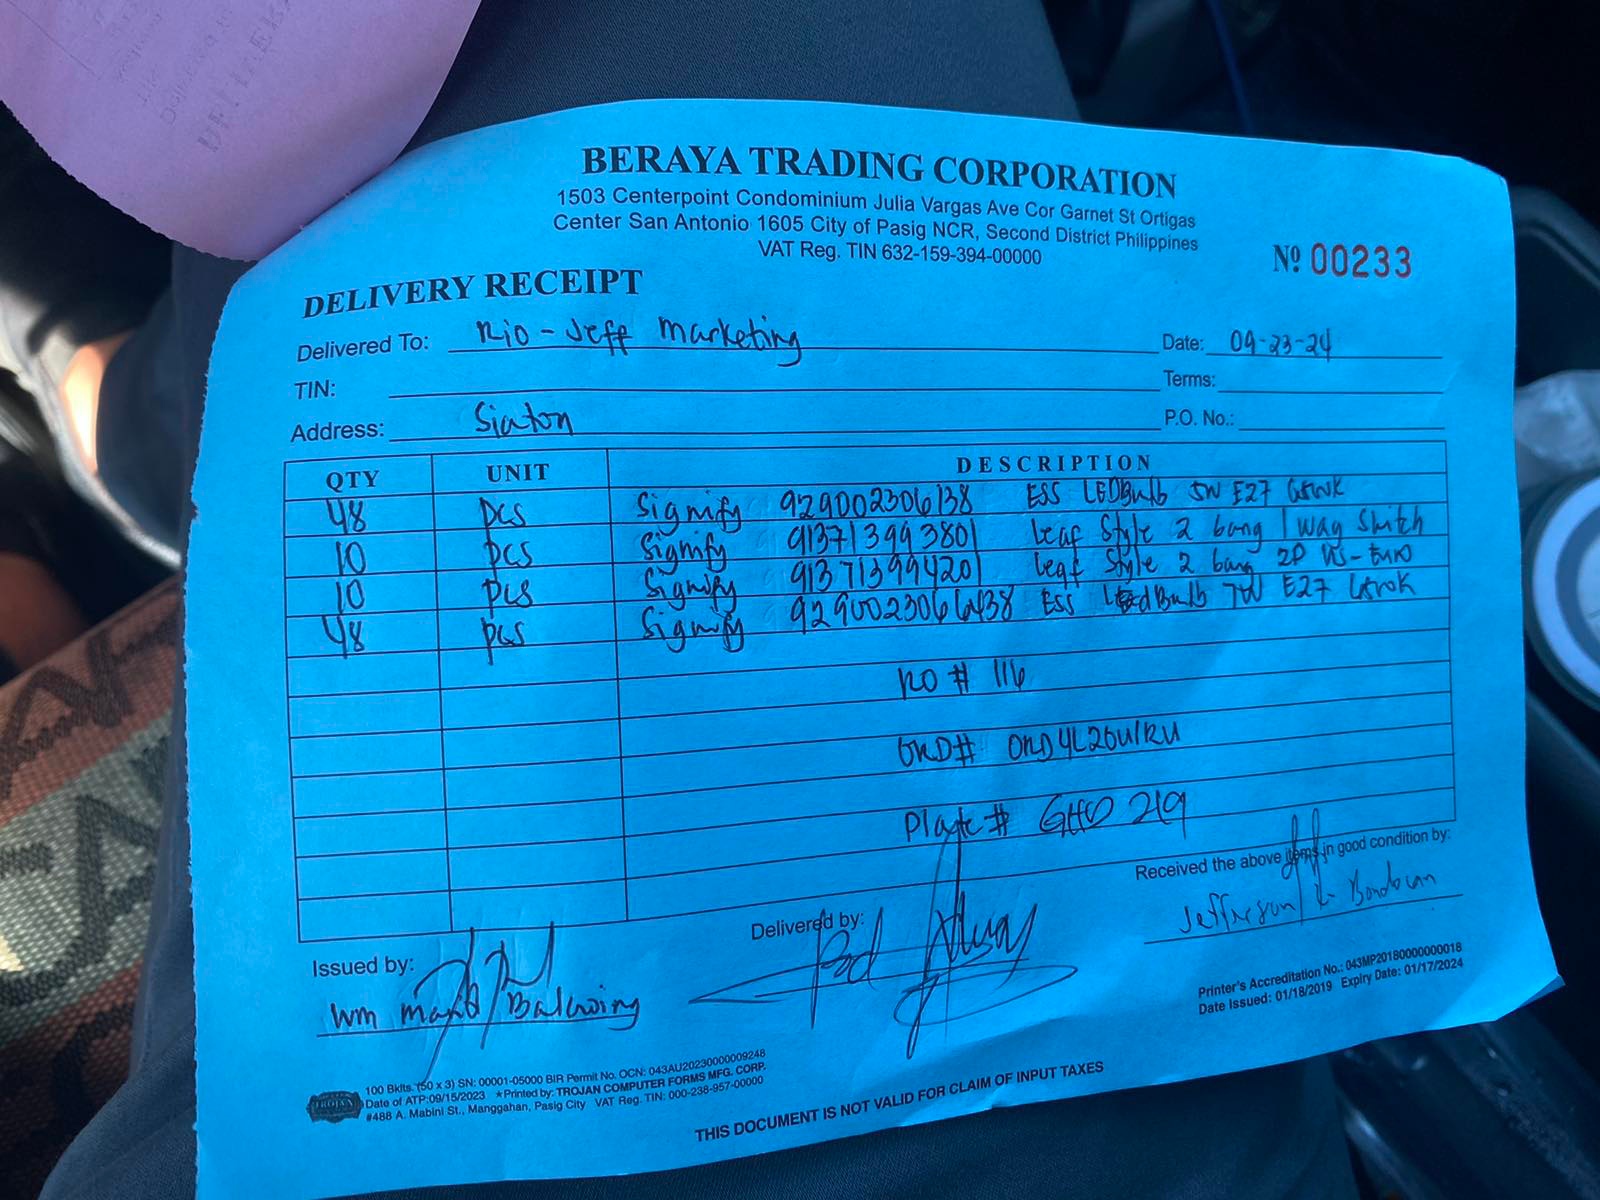 BERAYA TRADING CORPORATION
1503 Centerpoint Condominium Julia Vargas Ave Cor Garnet St Ortigas
Center San Antonio 1605 City of Pasig NCR, Second District Philippines
VAT Reg. TIN 632-159-394-00000
Nº 00233
DELIVERY RECEIPT
Delivered To: Rio-Jeff Marketing Date: 09-23-24
TIN: Terms:
Address: Siaton P.O. No.:
QTY UNIT DESCRIPTION
48 pcs Signify 929002306138 ESS LEDBulb 5W E27
10 pcs Signify 913713993801 Leaf Style 2 Gang 1 way Switch
10 pcs Signify 913713994201 Leaf Style 2 Gang 2P
48 pcs Signify ESS LedBulb 7W E27
RO # 116
ORD#
Plate # 219
Issued by: Delivered by: Received the above items in good condition by:
Printer's Accreditation No.: 043MP20180000000018
Date Issued: 01/18/2019 Expiry Date: 01/17/2024
100 Bklts. (50 x 3) SN: 00001-05000 BIR Permit No. OCN: 043AU20230000009248
Date of ATP:09/15/2023 ★Printed by: TROJAN COMPUTER FORMS MFG. CORP.
#488 A. Mabini St., Manggahan, Pasig City VAT Reg. TIN: 000-238-957-00000
TROJAN
THIS DOCUMENT IS NOT VALID FOR CLAIM OF INPUT TAXES